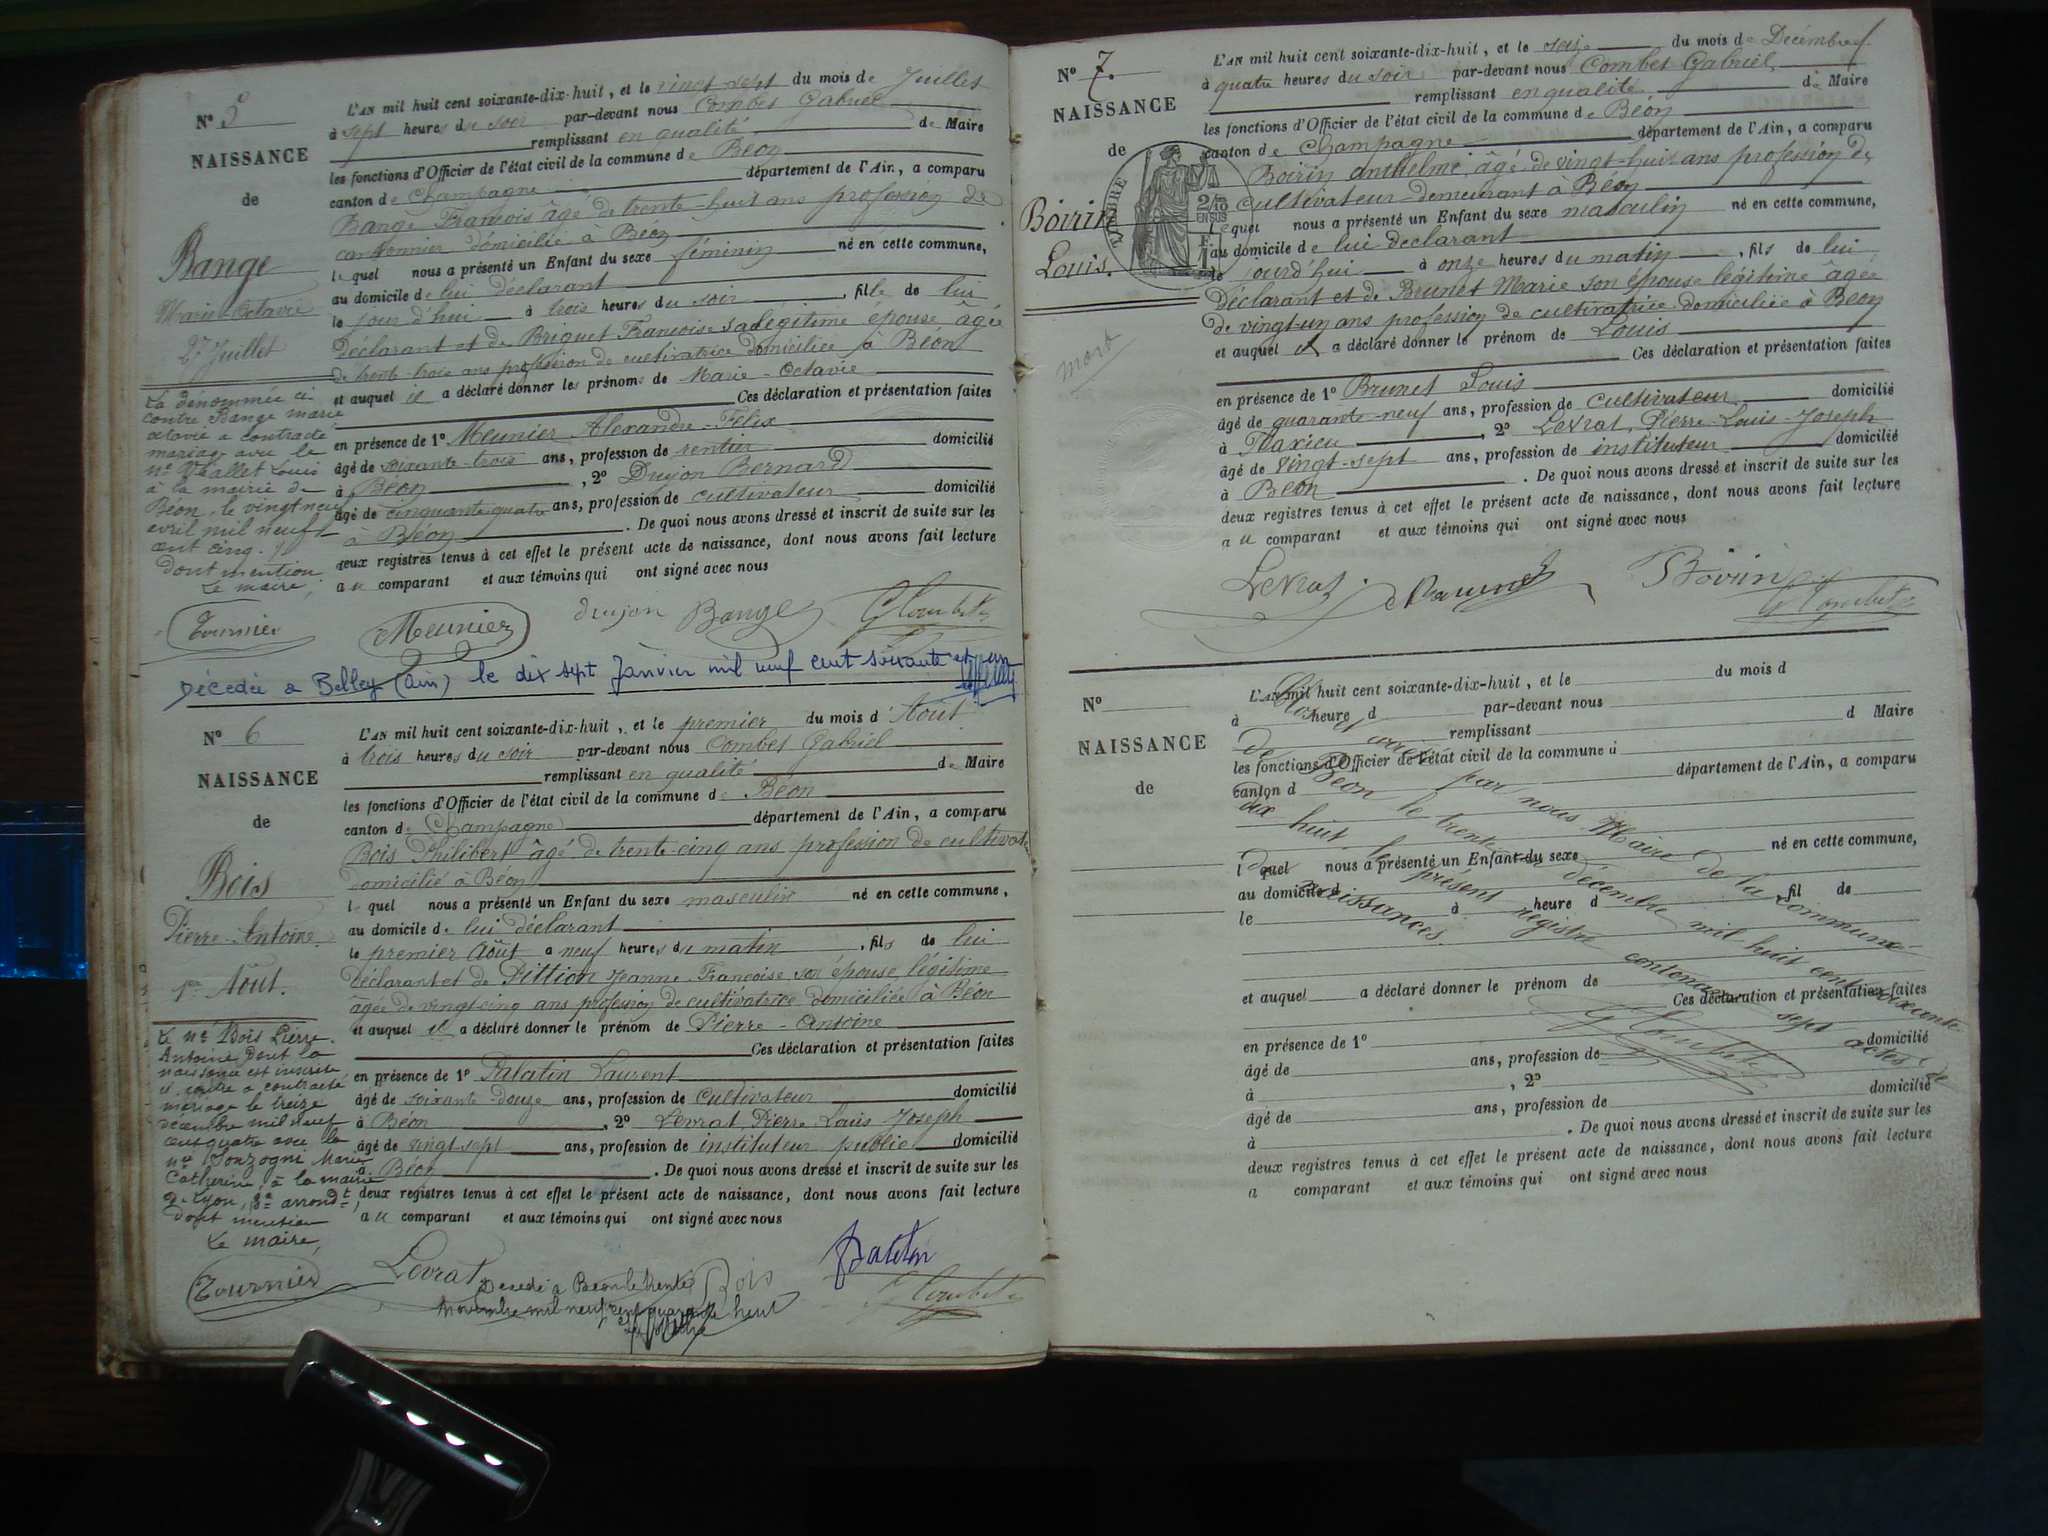 Nº 5
NAISSANCE
de
Bange
Marie-Octavie
27 Juillet
L'AN mil huit cent soixante-dix-huit, et le vingt-sept du mois de Juillet
à sept heures du soir par-devant nous Combet Gabriel
remplissant en qualité de Maire
les fonctions d'Officier de l'état civil de la commune de Béon
canton de Champagne département de l'Ain, a comparu
Bange François âgé de trente-huit ans profession de
cantonnier domicilié à Béon
lequel nous a présenté un Enfant du sexe féminin né en cette commune,
au domicile de lui déclarant
le jour d'hui à trois heures du soir, fille de lui
déclarant et de Briquet Françoise sa légitime épouse âgée
de trente-trois ans profession de cultivatrice domiciliée à Béon
et auquel il a déclaré donner les prénoms de Marie-Octavie
Ces déclaration et présentation faites
en présence de 1º Meunier Alexandre-Félix
âgé de soixante-trois ans, profession de rentier domicilié
à Béon, 2º Drujon Bernard
âgé de cinquante-quatre ans, profession de cultivateur domicilié
à Béon. De quoi nous avons dressé et inscrit de suite sur les
deux registres tenus à cet effet le présent acte de naissance, dont nous avons fait lecture
au comparant et aux témoins qui ont signé avec nous
La dénommée ci
contre Bange marie
octavie a contracté
mariage avec le
né Vallet Louis
à la mairie de
Béon, le vingt neuf
avril mil neuf
cent cinq.
dont mention
Le maire,
Tournier Meunier Drujon Bange G Combet
Décédée à Belley (Ain) le dix sept Janvier mil neuf cent soixante et un
Nº 6
NAISSANCE
de
Bois
Pierre-Antoine
1er Août.
L'AN mil huit cent soixante-dix-huit, et le premier du mois d'Août
à trois heures du soir par-devant nous Combet Gabriel
remplissant en qualité de Maire
les fonctions d'Officier de l'état civil de la commune de Béon
canton de Champagne département de l'Ain, a comparu
Bois Philibert âgé de trente-cinq ans profession de cultivateur
domicilié à Béon
lequel nous a présenté un Enfant du sexe masculin né en cette commune,
au domicile de lui déclarant
le premier Août a neuf heures du matin, fils de lui
déclarant et de Pittion Jeanne-Françoise son épouse légitime
âgée de vingt-cinq ans profession de cultivatrice domiciliée à Béon
et auquel il a déclaré donner le prénom de Pierre-Antoine
Ces déclaration et présentation faites
en présence de 1º Palatin Laurent
âgé de soixante-douze ans, profession de cultivateur domicilié
à Béon, 2º Levrat Pierre Louis Joseph
âgé de vingt-sept ans, profession de instituteur public domicilié
à Béon. De quoi nous avons dressé et inscrit de suite sur les
deux registres tenus à cet effet le présent acte de naissance, dont nous avons fait lecture
au comparant et aux témoins qui ont signé avec nous
Le né Bois Pierre
Antoine dont la
naissance est inscrite
ci contre a contracté
mariage le treize
décembre mil neuf
cent quatre avec la
née Sonzogni Marie
Catherine, à la mairie
de Lyon, 3e arrondt,
dont mention
Le maire,
Tournier Levrat Bois Palatin G Combet
Décédé à Béon le trente
novembre mil neuf cent quarante huit
Nº 7.
NAISSANCE
de
Boirin
Louis.
mort
TIMBRE
2/10
EN SUS
L'AN mil huit cent soixante-dix-huit, et le seize du mois de Décembre
à quatre heures du soir par-devant nous Combet Gabriel
remplissant en qualité de Maire
les fonctions d'Officier de l'état civil de la commune de Béon
canton de Champagne département de l'Ain, a comparu
Boirin anthelme, âgé de vingt-huit ans profession de
cultivateur demeurant à Béon
lequel nous a présenté un Enfant du sexe masculin né en cette commune,
au domicile de lui déclarant
le jourd'hui à onze heures du matin, fils de lui
déclarant et de Brunet Marie son épouse légitime âgée
de vingt-un ans profession de cultivatrice domiciliée à Béon
et auquel il a déclaré donner le prénom de Louis
Ces déclaration et présentation faites
en présence de 1º Brunet Louis
âgé de quarante-neuf ans, profession de cultivateur domicilié
à Flaxieu, 2º Levrat Pierre-Louis-Joseph
âgé de vingt-sept ans, profession de instituteur domicilié
à Béon. De quoi nous avons dressé et inscrit de suite sur les
deux registres tenus à cet effet le présent acte de naissance, dont nous avons fait lecture
au comparant et aux témoins qui ont signé avec nous
Levrat Brunet Boirin G Combet
Nº
NAISSANCE
de
L'AN mil huit cent soixante-dix-huit, et le du mois d
à heure d par-devant nous
remplissant d Maire
les fonctions d'Officier de l'état civil de la commune d
canton d département de l'Ain, a comparu
l quel nous a présenté un Enfant du sexe né en cette commune,
au domicile d
le à heure d fil de
et auquel a déclaré donner le prénom de
Ces déclaration et présentation faites
en présence de 1º
âgé de ans, profession de domicilié
à , 2º
âgé de ans, profession de domicilié
à . De quoi nous avons dressé et inscrit de suite sur les
deux registres tenus à cet effet le présent acte de naissance, dont nous avons fait lecture
a comparant et aux témoins qui ont signé avec nous
Clos et arrêté par nous Maire de la Commune
de Béon le trente décembre mil huit cent soixante
dix huit le présent registre contenant sept actes de
naissances.
G Combet